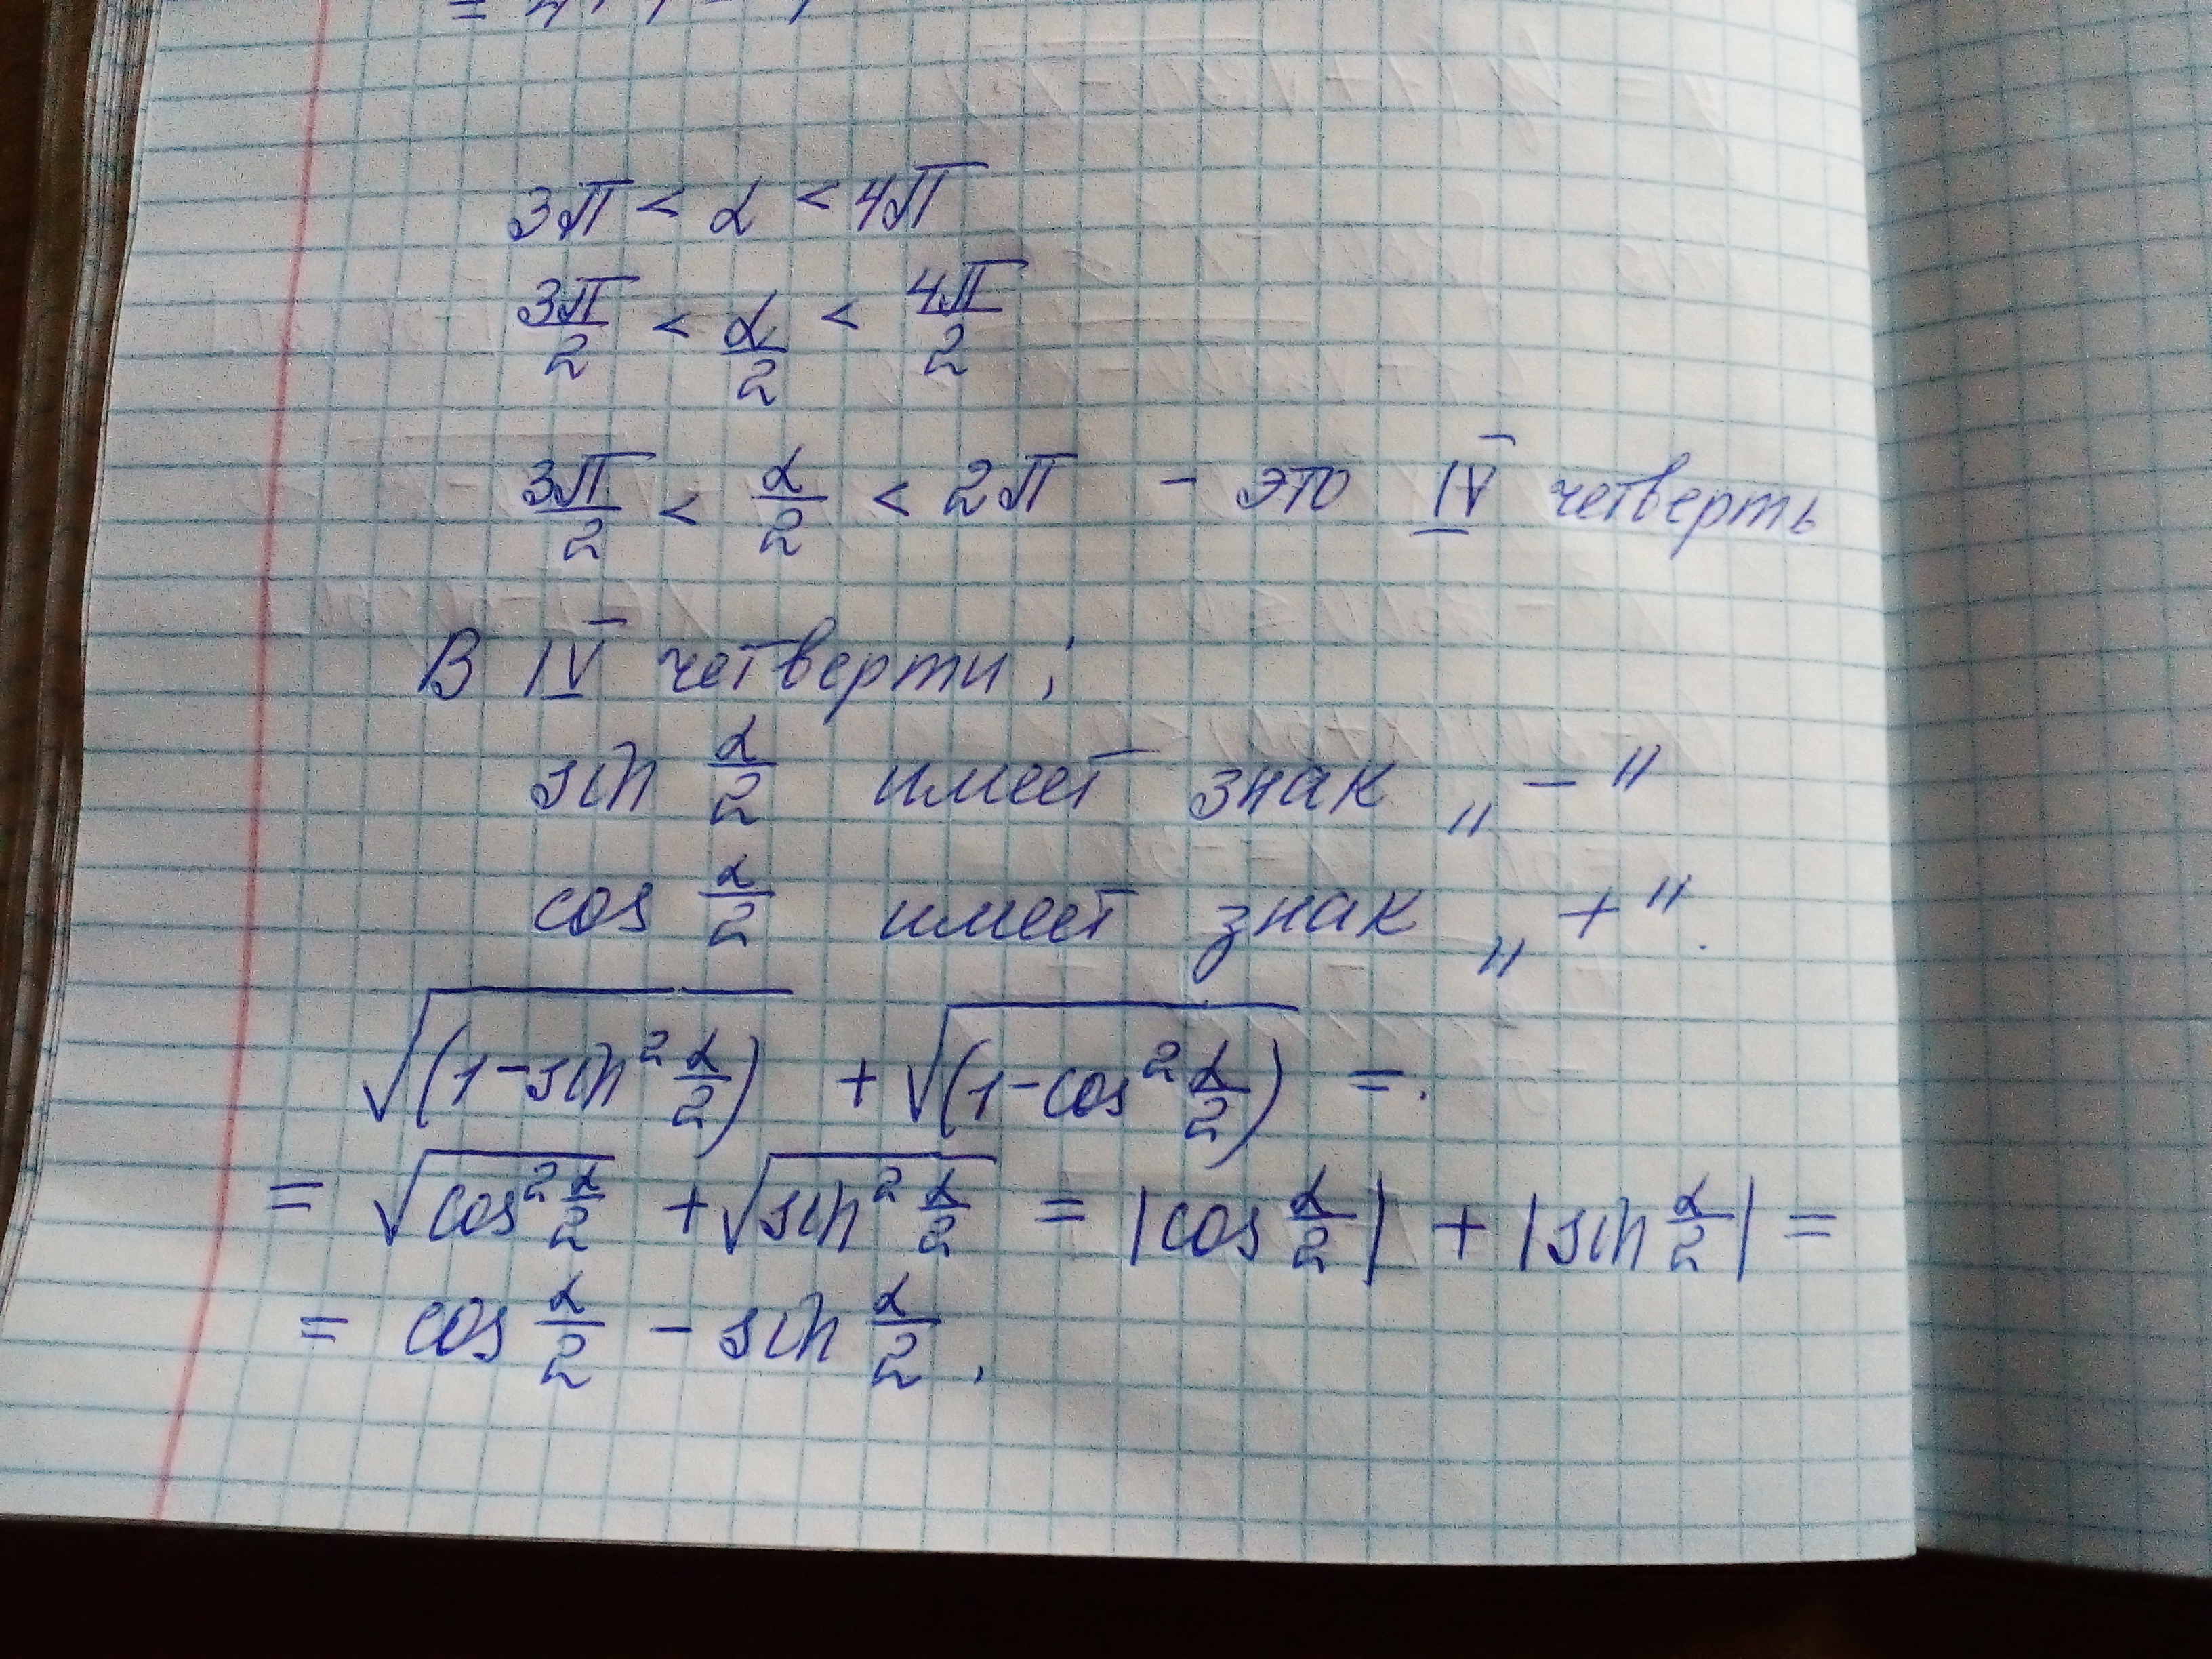 3π < α < 4π
3π/2 < α/2 < 4π/2
3π/2 < α/2 < 2π - это IV четверть
В IV четверти:
sin α/2 имеет знак „ - "
cos α/2 имеет знак „ + ".
√(1-sin² α/2) + √(1-cos² α/2) =
= √cos² α/2 + √sin² α/2 = |cos α/2| + |sin α/2| =
= cos α/2 - sin α/2.